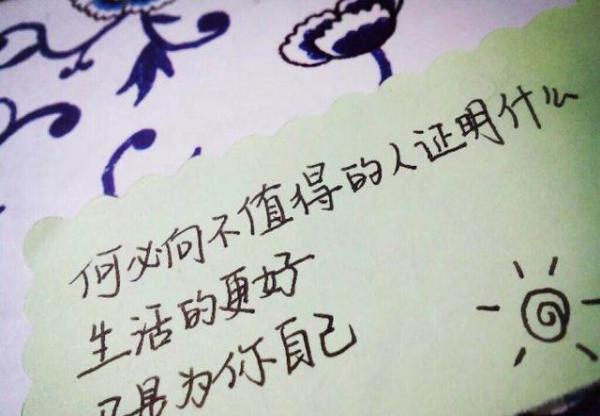 何必向不值得的人证明什么
生活的更好
是为你自己